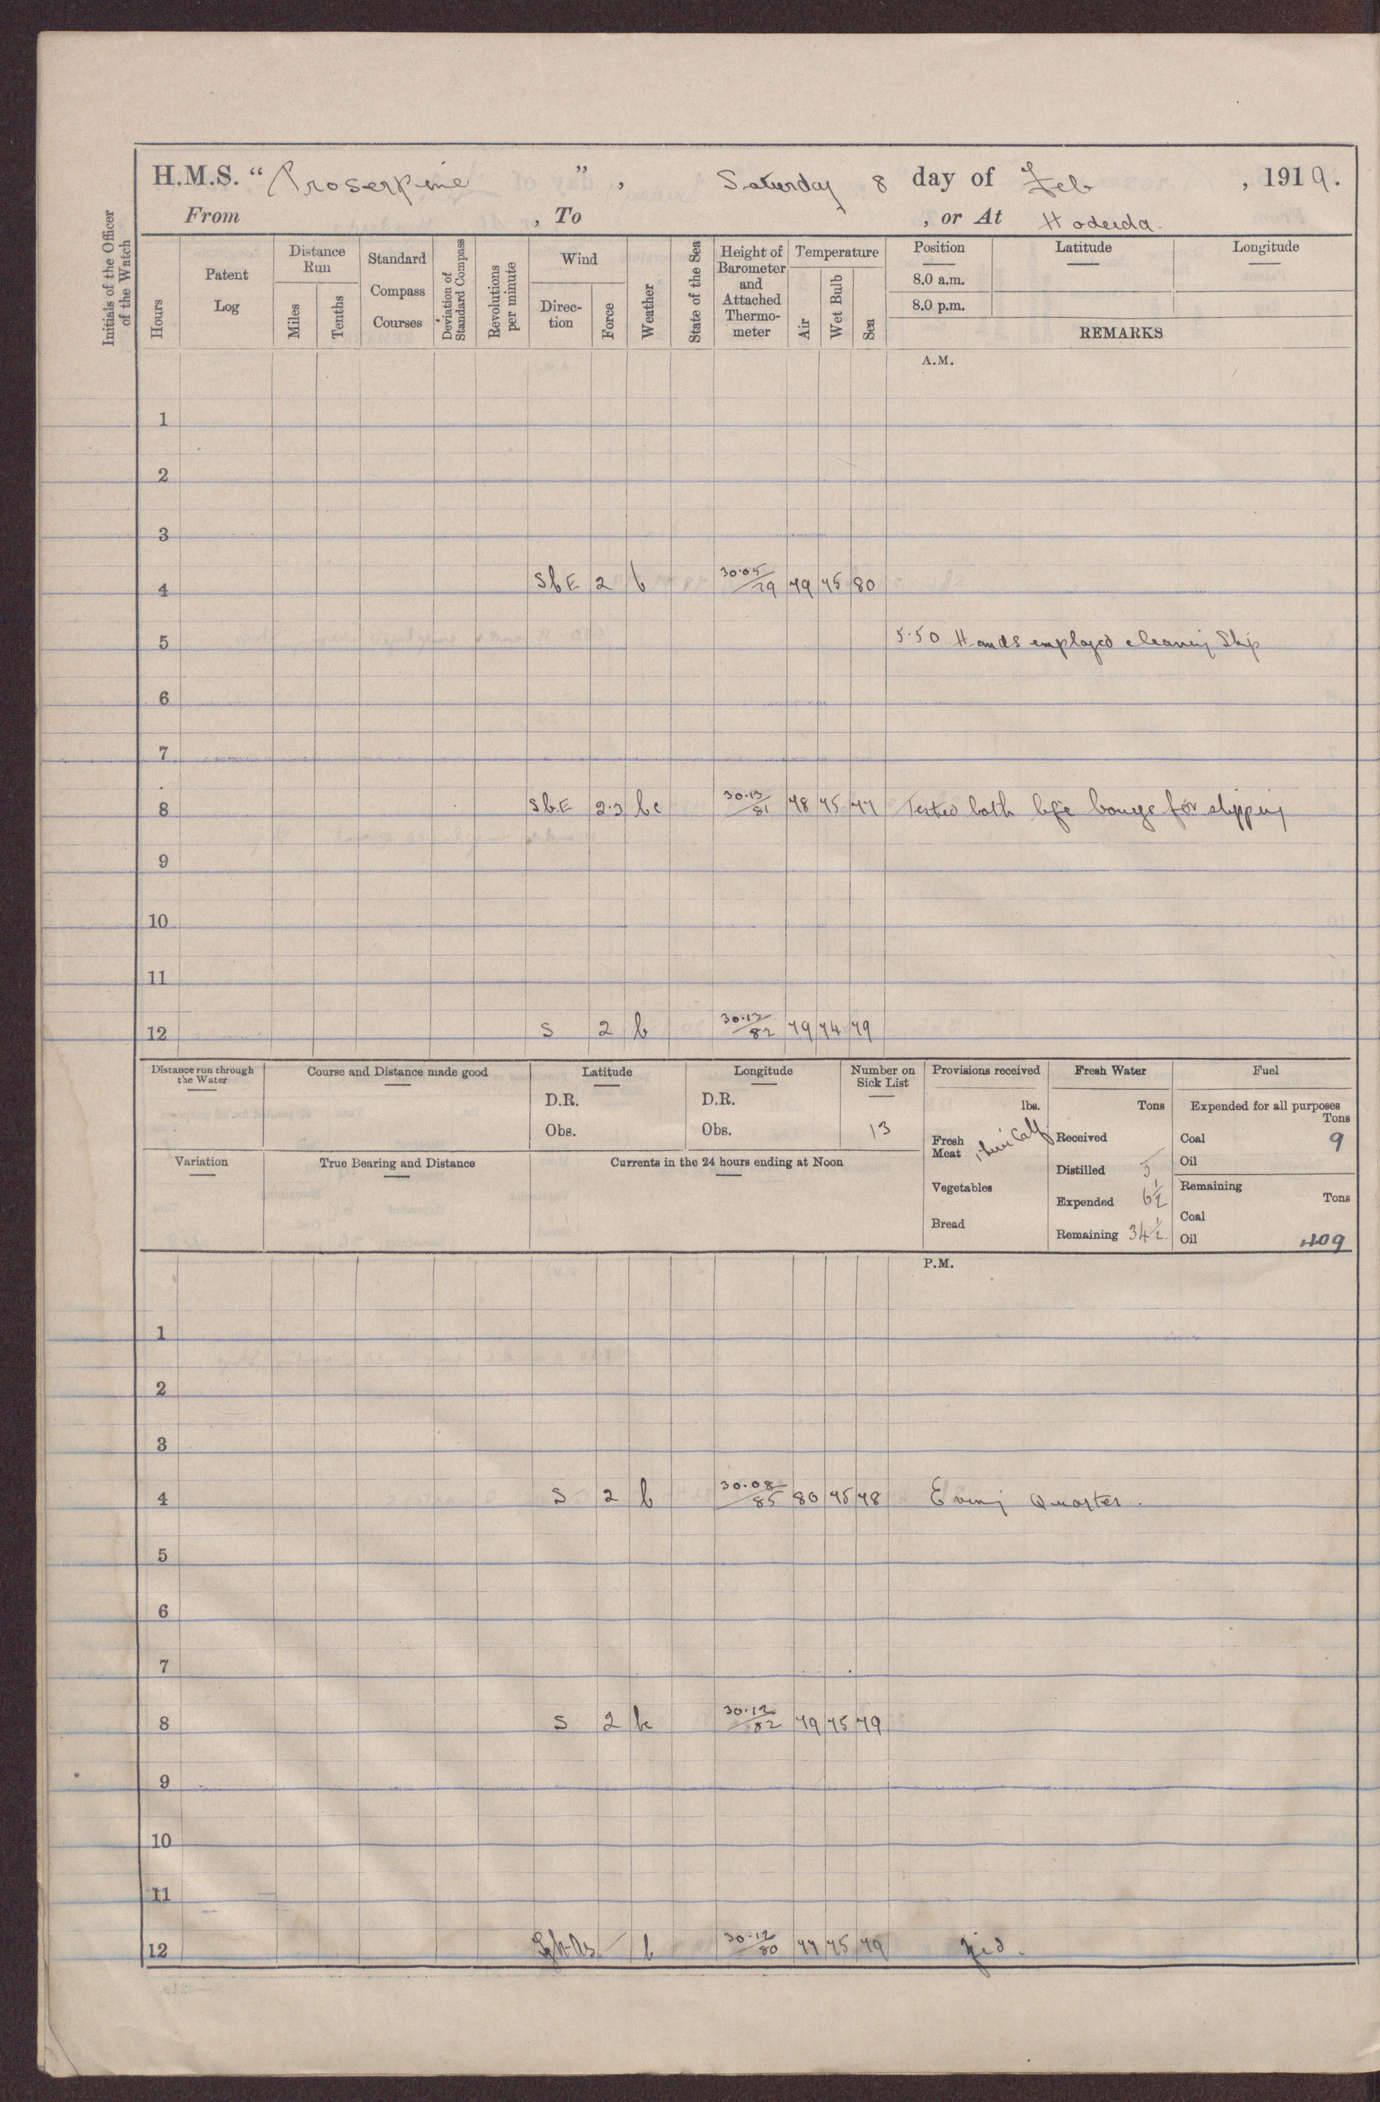 H.M.S. “Proserpine”, Saturday 8 day of Feb, 1919.
From , To , or At Hodeida.
Initials of the Officer of the Watch
Hours
Patent Log
Distance Run
Miles
Tenths
Standard Compass Courses
Deviation of Standard Compass
Revolutions per minute
Wind
Direction
Force
Weather
State of the Sea
Height of Barometer and Attached Thermometer
Temperature
Air
Wet Bulb
Sea
Position Latitude Longitude
8.0 a.m.
8.0 p.m.
REMARKS
A.M.
1
2
3
4 SbE 2 b 30.05/79 79 75 80
5 5.50 Hands employed cleaning Ship
6
7
8 SbE 2.3 bc 30.13/81 78 75 77 Tested both life bouys for slipping
9
10
11
12 S 2 b 30.13/82 79 74 79
Distance run through the Water
Course and Distance made good
Latitude
D.R.
Obs.
Longitude
D.R.
Obs.
Number on Sick List
13
Variation
True Bearing and Distance
Currents in the 24 hours ending at Noon
Provisions received
lbs.
Fresh Meat
Vegetables
Bread
Fresh Water
Tons
Received
Distilled 5
Expended 6½
Remaining 34½
Fuel
Expended for all purposes
Tons
Coal 9
Oil
Remaining
Tons
Coal
Oil 409
P.M.
1
2
3
4 S 2 b 30.08/85 80 75 78 Evening Quarters.
5
6
7
8 S 2 bc 30.12/82 79 75 79
9
10
11
12 b 30.12/80 77 75 79